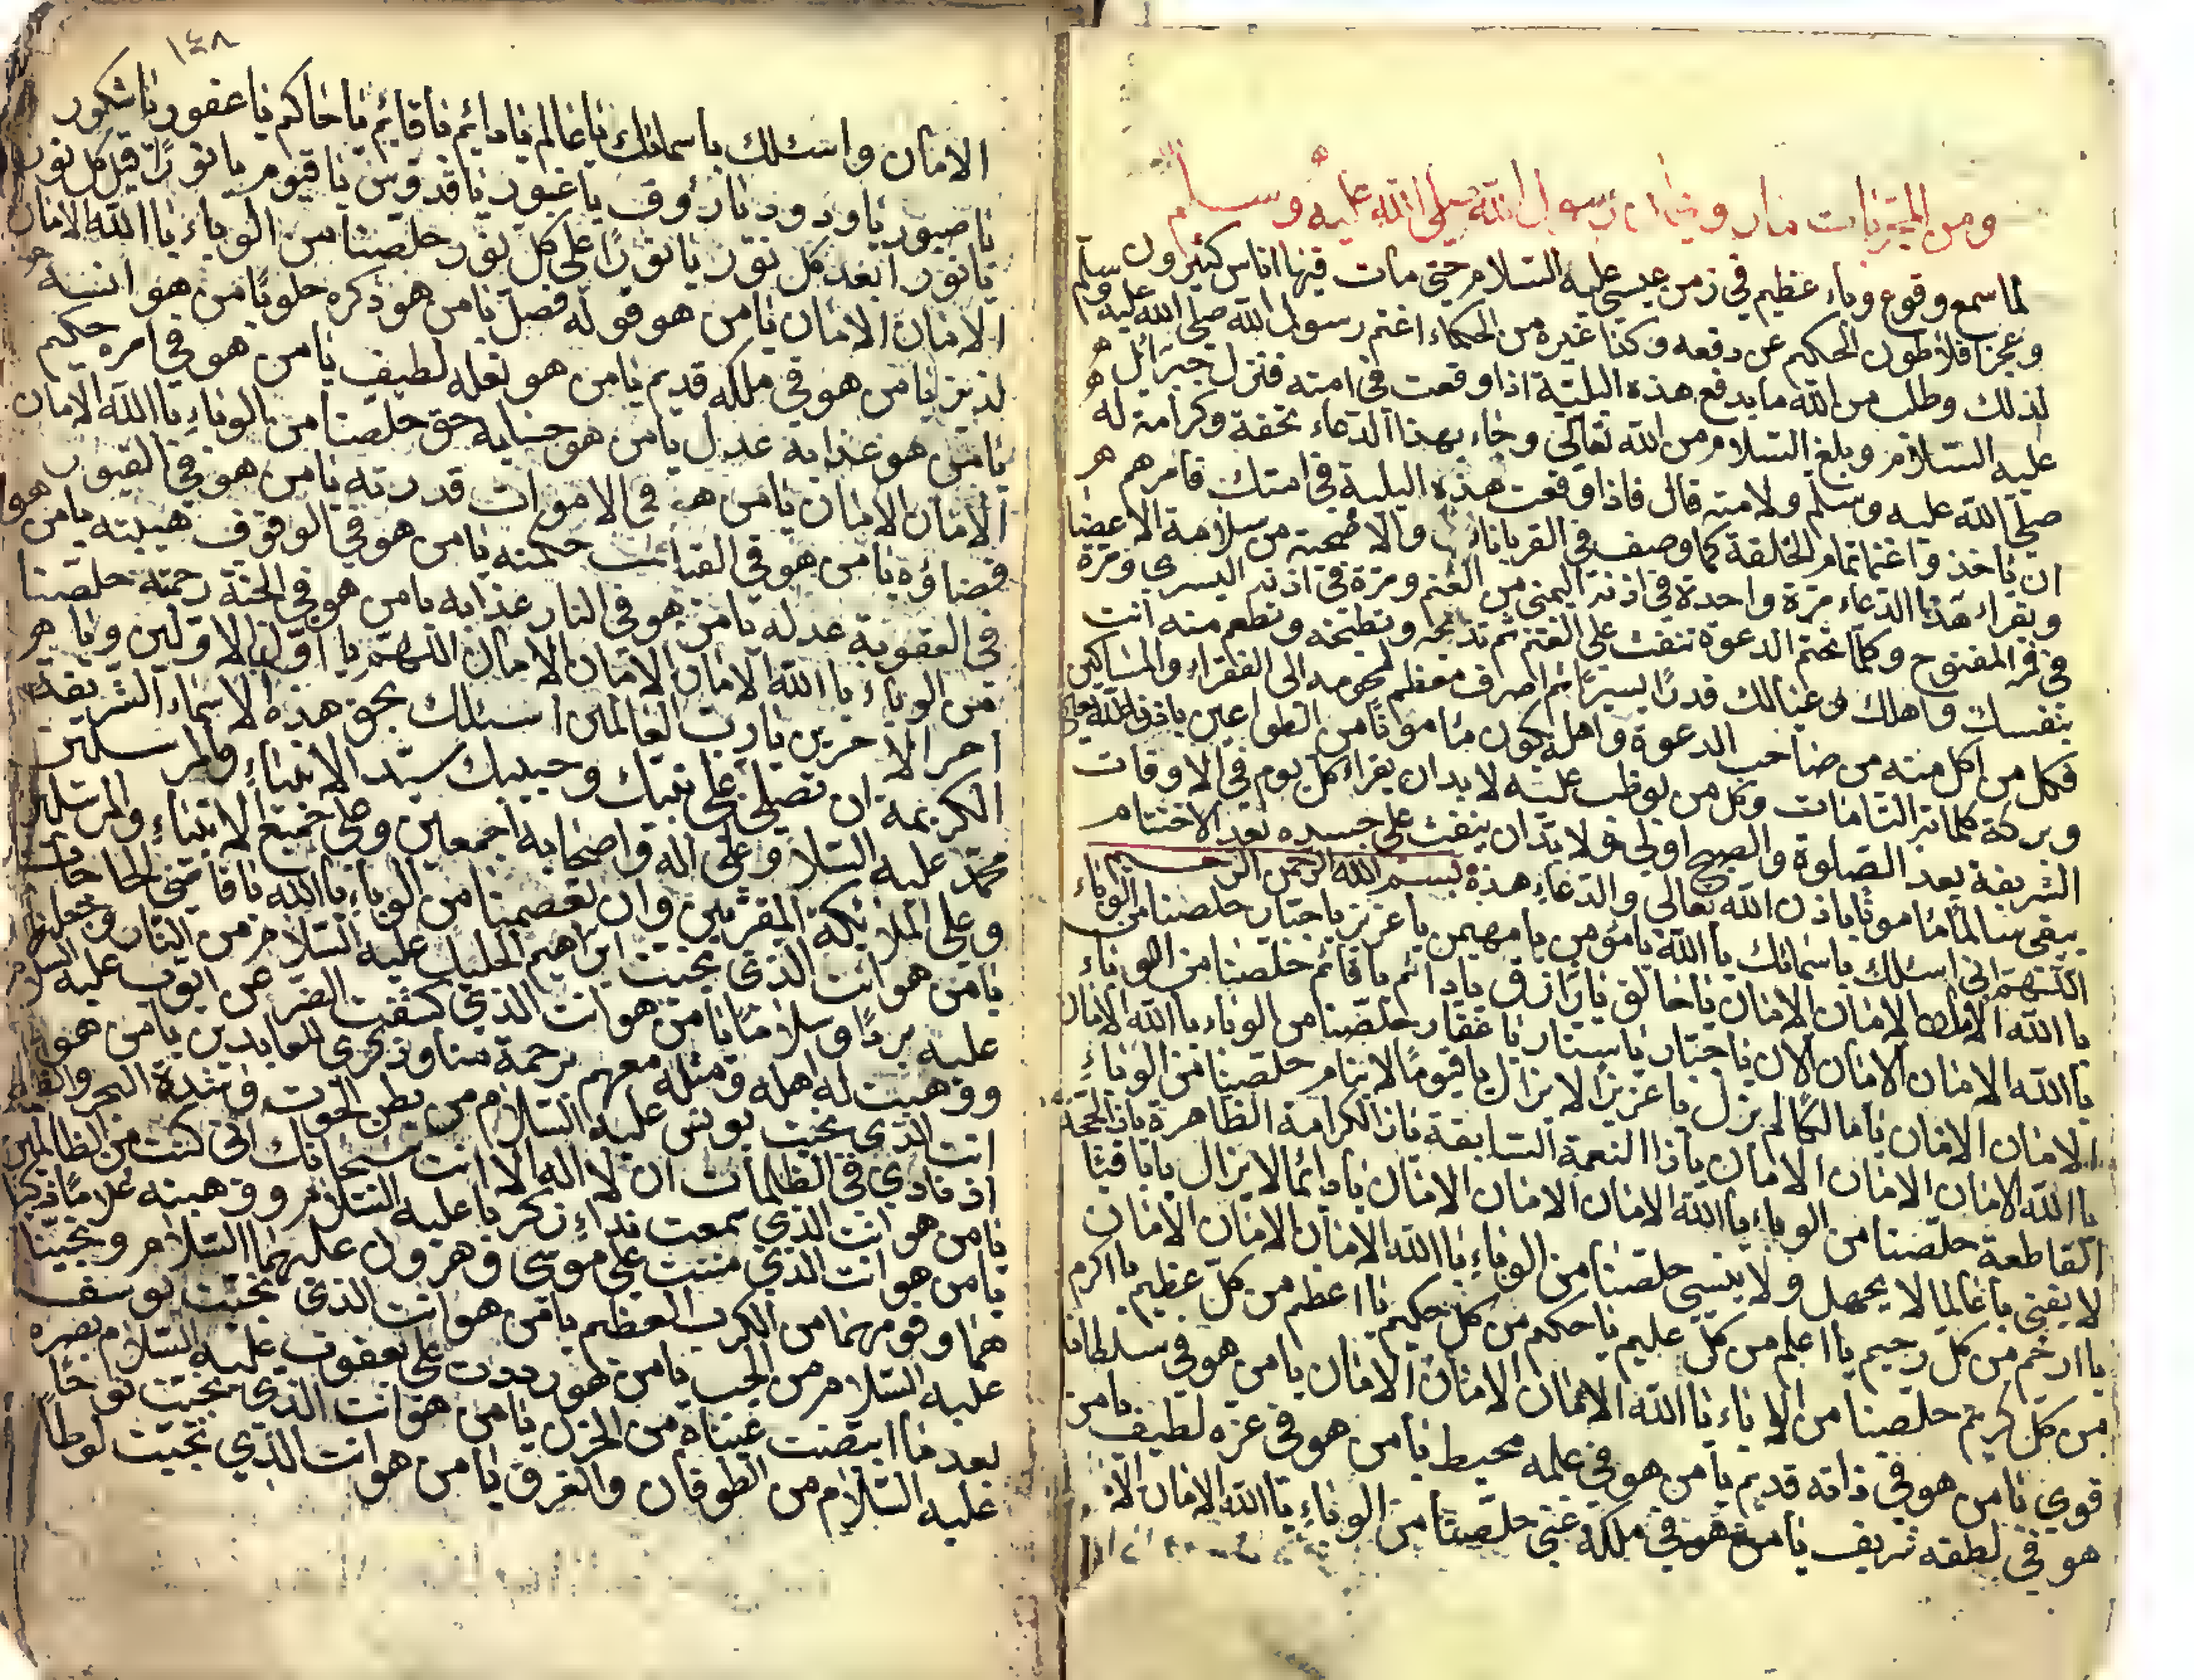 ومن المجربات ما روي ان رسول الله صلى الله عليه وسلم
لما سمع وقوع وباء عظيم في زمن عيسى عليه السلام حتى مات فيها اناس كثيرون
وعجز افلاطون الحكيم عن دفعه وكذا غيره من الحكماء اغتم رسول الله صلى الله عليه وسلم
لذلك وطلب من الله ما يدفع هذه البلية اذا وقعت في امته فنزل جبرائل
عليه السلام وبلغ السلام من الله تعالى وجاء بهذا الدعاء تحفة وكرامة له
صلى الله عليه وسلم ولامته قال فاذا وقعت هذه البلية في امتك فامرهم
ان ياخذ واغنما تمام الخلقة كما وصف في القربانات والاضحية من سلامة الاعضا
ويقراء هذا الدعاء مرة واحدة في اذنه اليمنى من الغنم ومرة في اذنه اليسرى ومرة
في فم المفتوح وكلما تختم الدعوة تنفث على الغنم ثم تذبحه وتطبخه وتطعم منه انت
بنفسك واهلك وعيالك قدرا يسيرا ثم اصرف معظم لحومه الى الفقراء والمساكين
فكل من اكل منه من صاحب الدعوة واهله يكون مامونا من الطواعين باذن الله تعالى
وبركة كلماته التامات وكل من يوظب عليه لا بد ان يقراء كل يوم في الاوقات
الشريفة بعد الصلوة والصبح اولى ولا بد ان ينفث على جسده بعد الاختتام
يبقى سالما مامونا باذن الله تعالى والدعاء هذه بسم الله الرحمن الرحيم
اللهم اني اسئلك باسمائك يا الله يا مؤمن يا مهيمن يا عزيز يا جبار خلصنا من الوباء
يا الله الامان الامان الامان يا خالق يا رازق يا دائم يا قائم خلصنا من الوباء
يا الله الامان الامان الامان يا جبار يا ستار يا غفار خلصنا من الوباء يا الله الامان
الامان الامان يا مالكا لم يزل يا عزيزا لا يزال يا قيوما لا ينام خلصنا من الوباء
يا الله الامان الامان الامان يا ذا النعمة السابقة يا ذا الكرامة الظاهرة يا ذا الحجة
القاطعة خلصنا من الوباء يا الله الامان الامان الامان يا دائما لا يزال يا باقيا
لا يفنى يا عالما لا يجهل ولا ينسى خلصنا من الوباء يا الله الامان الامان الامان
يا ارحم من كل رحيم يا اعلم من كل عليم يا احكم من كل حكيم يا اعظم من كل عظيم يا اكرم
من كل كريم خلصنا من الاباء يا الله الامان الامان الامان يا من هو في سلطانه
قوي يا من هو في ذاته قديم يا من هو في علمه محيط يا من هو في عزه لطيف يا من
هو في لطفه شريف يا من هو في ملكه غني خلصنا من الوباء يا الله الامان الا
١٤٨
الامان واسئلك باسمائك يا عالم يا دائم يا قايم يا حاكم يا غفور يا شكور
يا صبور يا ودود يا رؤوف يا غيور يا قدوس يا قيوم يا نورا قبل كل نور
يا نورا بعد كل نور يا نورا على كل نور خلصنا من الوباء يا الله الامان
الامان الامان يا من هو قوله فصل يا من هو ذكره حلو يا من هو انسه
لذيذ يا من هو في ملكه قديم يا من هو فعله لطيف يا من هو في امره حكيم
يا من هو عذابه عدل يا من هو حسابه حق خلصنا من الوباء يا الله الامان
الامان الامان يا من هو في الاموات قدرته يا من هو في القبور
قضاؤه يا من هو في القيامت حكمته يا من هو في الوقوف هيبته يا من هو
في العقوبة عدله يا من هو في النار عذابه يا من هو في الجنة رحمته خلصنا
من الوباء يا الله الامان الامان الامان اللهم يا اول الاولين ويا
اخر الاخرين يا رب العالمين اسئلك بحق هذه الاسماء الشريفة
الكريمة ان تصلي على نبيك وحبيبك سيد الانبياء والمرسلين
محمد عليه السلام وعلى اله واصحابه اجمعين وعلى جميع الانبياء والمرسلين
وعلى الملائكة المقربين وان تعصمنا من الوباء يا الله يا قاضي الحاجات
يا من هو انت الذي نجيت ابراهيم الخليل عليه السلام من النار وجعلتها
عليه بردا وسلاما يا من هو انت الذي كشفت الضر عن ايوب عليه السلام
ووهبت له اهله ومثله معهم رحمة منا وذكرى للعابدين يا من هو
انت الذي نجيت يونس عليه السلام من بطن الحوت وشدة البحر
اذ نادى في الظلمات ان لا اله الا انت سبحانك انى كنت من الظالمين
يا من هو انت الذي سمعت نداء زكريا عليه السلام ووهبته غلاما زكيا
يا من هو انت الذي مننت على موسى وهرون عليهما السلام ونجيتا
هما وقومهما من الكرب العظيم يا من هو انت الذي نجيت يوسف
عليه السلام من الجب يا من هو رددت على يعقوب عليه السلام بصره
بعد ما ابيضت عيناه من الحزن يا من هو انت الذي نجيت نوحا
عليه السلام من الطوفان والغرق يا من هو انت الذي نجيت لوطا